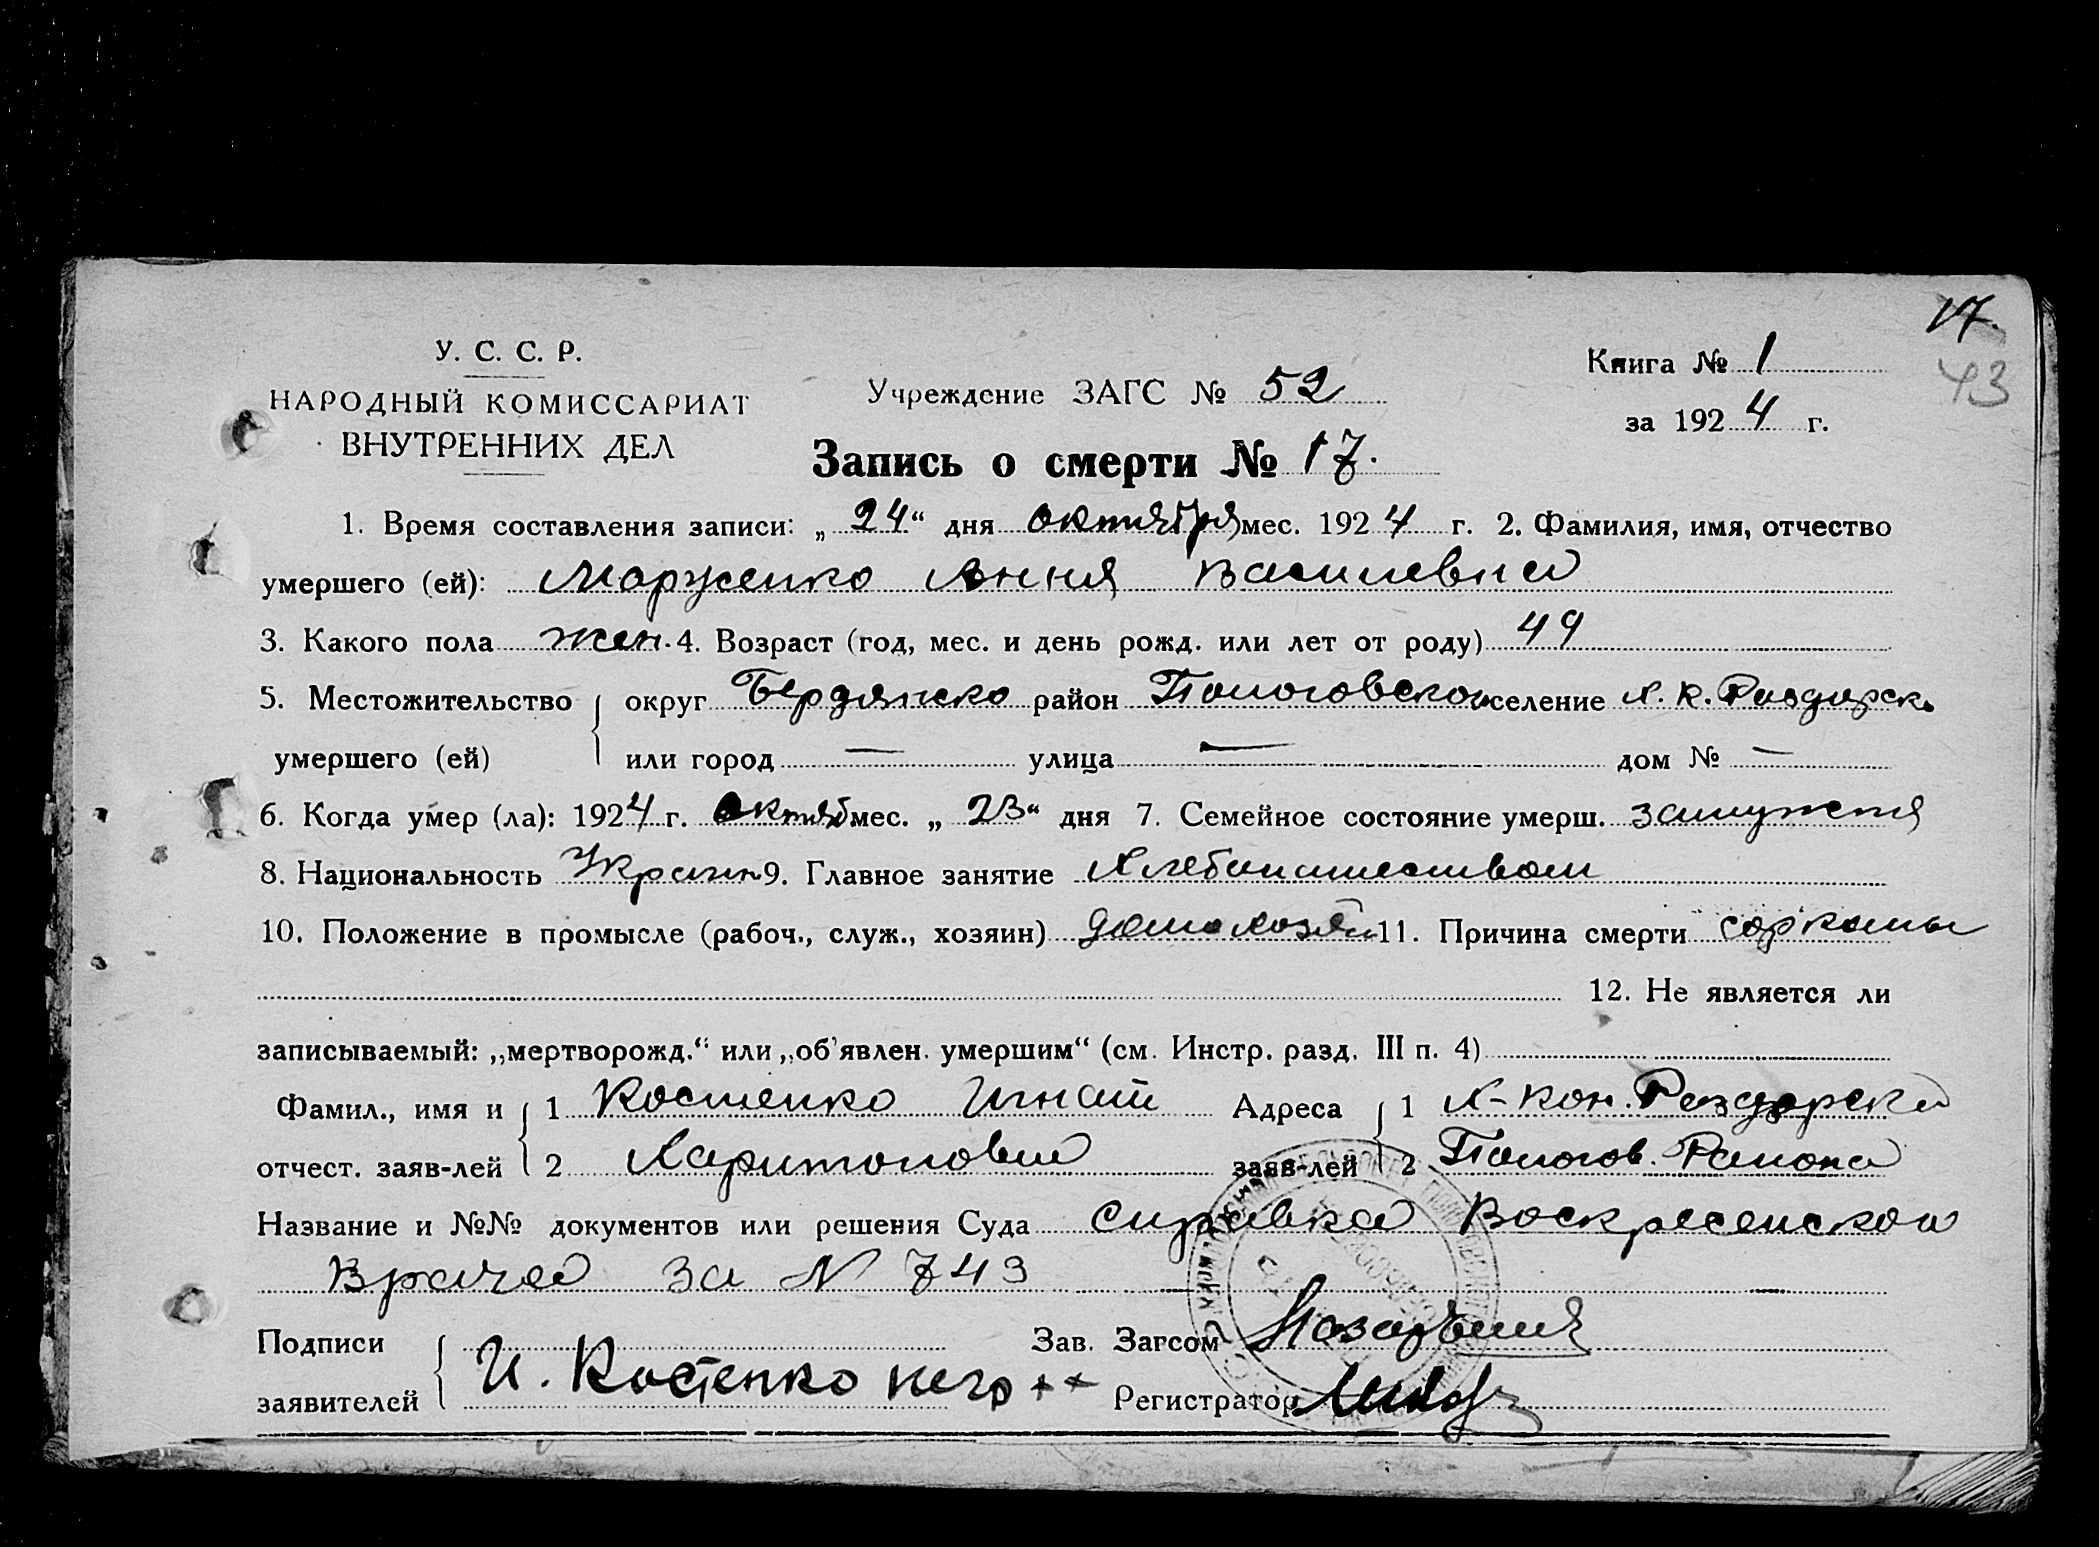 17.
43
У. С. С. Р.
НАРОДНЫЙ КОМИССАРИАТ
ВНУТРЕННИХ ДЕЛ
Учреждение ЗАГС № 52
Книга № 1
за 1924 г.
Запись о смерти № 17.
1. Время составления записи: „24“ дня октября мес. 1924 г. 2. Фамилия, имя, отчество
умершего (ей): Марченко Анна Васильевна
3. Какого пола жен. 4. Возраст (год, мес. и день рожд. или лет от роду) 49
5. Местожительство округ Бердянско район Пологовской селение Х. К. Роздорск.
умершего (ей) или город — улица — дом № —
6. Когда умер (ла): 1924 г. Октяб мес. „23“ дня 7. Семейное состояние умерш. замужняя
8. Национальность Украин 9. Главное занятие Хлебопашеством
10. Положение в промысле (рабоч., служ., хозяин) домохозяин 11. Причина смерти саркомы
12. Не является ли
записываемый: „мертворожд.“ или „об'явлен. умершим“ (см. Инстр. разд. III п. 4)
Фамил., имя и 1 Костенко Игнат Адреса 1 Х-Кон. Роздорска
отчест. заяв-лей 2 Харитонович заяв-лей 2 Пологов. Района
Название и №№ документов или решения Суда Справка Воскресенского
Врача за N 743
Подписи Зав. Загсом
заявителей И. Костенко негр ++ Регистратор